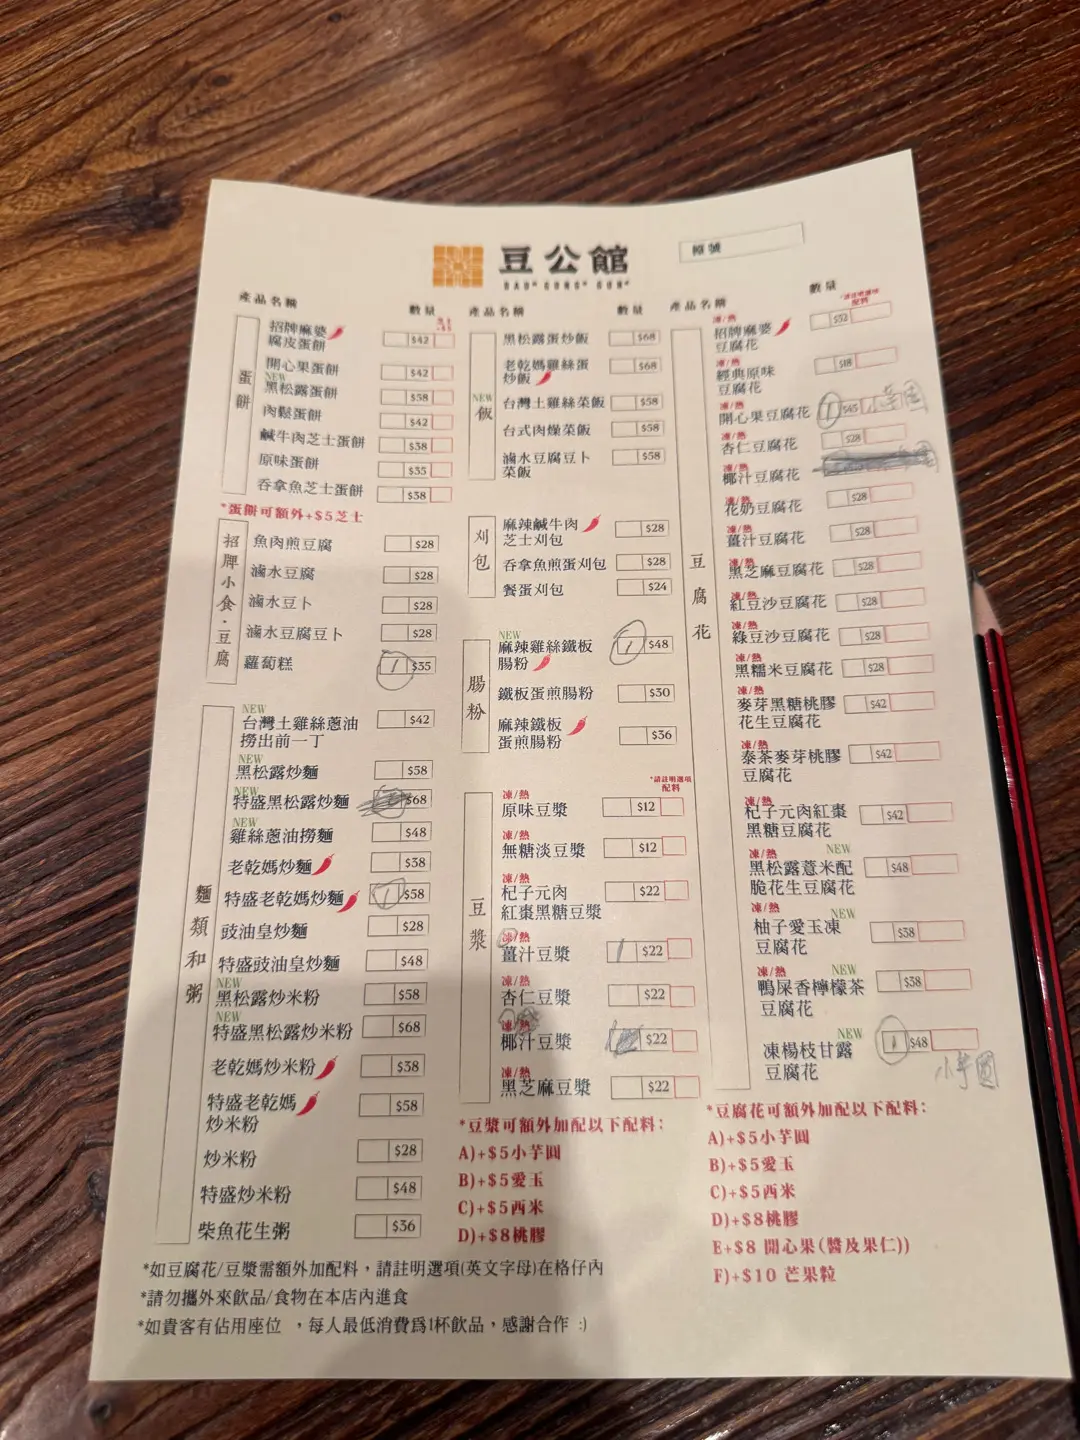 豆公館
DAO* GONG* GUN*
檯號
產品名稱
數量
蛋餅
招牌麻婆
腐皮蛋餅
$42
開心果蛋餅
$42
NEW
黑松露蛋餅
$58
肉鬆蛋餅
$42
鹹牛肉芝士蛋餅
$38
原味蛋餅
$35
吞拿魚芝士蛋餅
$38
*蛋餅可額外+$5芝士
招牌小食·豆腐
魚肉煎豆腐
$28
滷水豆腐
$28
滷水豆卜
$28
滷水豆腐豆卜
$28
蘿蔔糕
1 $35
麵類和粥
NEW
台灣土雞絲蔥油
撈出前一丁
$42
NEW
黑松露炒麵
$58
NEW
特盛黑松露炒麵
$68
NEW
雞絲蔥油撈麵
$48
老乾媽炒麵
$38
特盛老乾媽炒麵
1 $58
豉油皇炒麵
$28
特盛豉油皇炒麵
$48
NEW
黑松露炒米粉
$58
NEW
特盛黑松露炒米粉
$68
老乾媽炒米粉
$38
特盛老乾媽
炒米粉
$58
炒米粉
$28
特盛炒米粉
$48
柴魚花生粥
$36
產品名稱
數量
NEW
飯
黑松露蛋炒飯
$68
老乾媽雞絲蛋
炒飯
$68
台灣土雞絲菜飯
$58
台式肉燥菜飯
$58
滷水豆腐豆卜
菜飯
$58
刈包
麻辣鹹牛肉
芝士刈包
$28
吞拿魚煎蛋刈包
$28
餐蛋刈包
$24
腸粉
NEW
麻辣雞絲鐵板
腸粉
1 $48
鐵板蛋煎腸粉
$30
麻辣鐵板
蛋煎腸粉
$36
*請註明選項
配料
豆漿
凍/熱
原味豆漿
$12
凍/熱
無糖淡豆漿
$12
凍/熱
杞子元肉
紅棗黑糖豆漿
$22
凍/熱
薑汁豆漿
1 $22
凍/熱
杏仁豆漿
$22
凍/熱
椰汁豆漿
$22
凍/熱
黑芝麻豆漿
$22
*豆漿可額外加配以下配料：
A)+$5小芋圓
B)+$5愛玉
C)+$5西米
D)+$8桃膠
產品名稱
數量
*請註明選項
配料
豆腐花
凍/熱
招牌麻婆
豆腐花
$32
凍/熱
經典原味
豆腐花
$18
凍/熱
開心果豆腐花
1 $45 小芋圓
凍/熱
杏仁豆腐花
$28
凍/熱
椰汁豆腐花
凍/熱
花奶豆腐花
$28
凍/熱
薑汁豆腐花
$28
凍/熱
黑芝麻豆腐花
$28
凍/熱
紅豆沙豆腐花
$28
凍/熱
綠豆沙豆腐花
$28
凍/熱
黑糯米豆腐花
$28
凍/熱
麥芽黑糖桃膠
花生豆腐花
$42
凍/熱
泰茶麥芽桃膠
豆腐花
$42
凍/熱
杞子元肉紅棗
黑糖豆腐花
$42
凍/熱 NEW
黑松露薏米配
脆花生豆腐花
$48
凍/熱 NEW
柚子愛玉凍
豆腐花
$38
凍/熱 NEW
鴨屎香檸檬茶
豆腐花
$38
NEW
凍楊枝甘露
豆腐花
1 $48
小芋圓
*豆腐花可額外加配以下配料：
A)+$5小芋圓
B)+$5愛玉
C)+$5西米
D)+$8桃膠
E+$8 開心果(醬及果仁))
F)+$10 芒果粒
*如豆腐花/豆漿需額外加配料，請註明選項(英文字母)在格仔內
*請勿攜外來飲品/食物在本店內進食
*如貴客有佔用座位 ，每人最低消費爲1杯飲品，感謝合作 :)